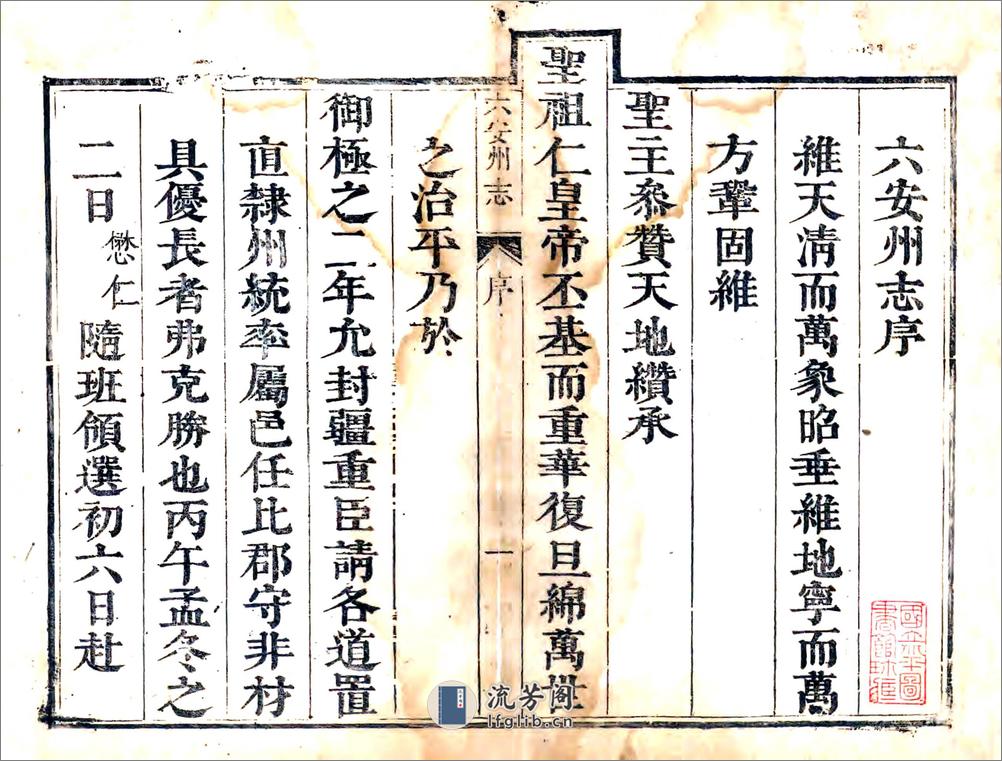 六安州志序
維天淸而萬象昭垂維地寧而萬
方鞏固維
聖主叅贊天地纘承
聖祖仁皇帝丕基而重華復旦綿萬世
六安州志
序
一
之治平乃於
御極之二年允封疆重臣請各道置
直隸州統率屬邑任比郡守非材
具優長者弗克勝也丙午孟冬之
二日懋仁隨班領選初六日赴
流芳阁
lfglib.cn